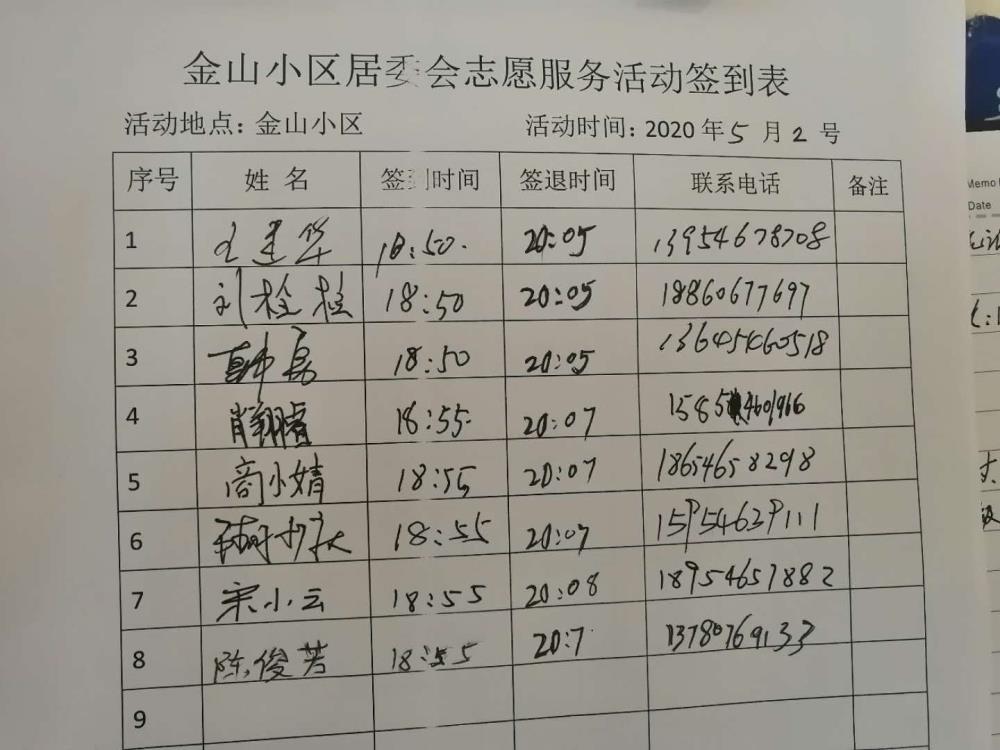 金山小区居委会志愿服务活动签到表
活动地点: 金山小区 活动时间: 2020年5月2号
序号 姓名 签到时间 签退时间 联系电话 备注
1 王建华 18:50. 20:05 13954678708
2 刘栓柱 18:50 20:05 18860677697
3 韩勇 18:50 20:05 13645460518
4 肖翔睿 18:55. 20:07
5 商小婧 18:55 20:07 18654658298
6 18:55 20:07 15954639111
7 宋小云 18:55 20:08 18954657882
8 陈俊芳 18:55 20:7 13780769133
9
Memo
Date